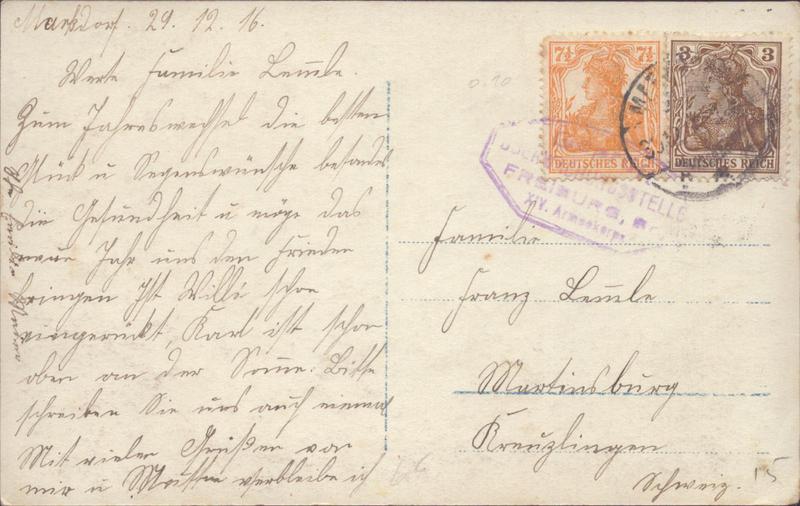 Markdorf. 29. 12. 16.
Werte Familie Lemmle.
Zum Jahreswechsel die besten
Glück u Segenswünsche besonders
die Gesundheit u möge das
neue Jahr uns den Frieden
bringen Ist Willi schon
eingerückt, Karl ist schon
oben an der Somme. Bitte
schreiben Sie uns auch einmal
Mit vielen Grüßen von
mir u Mutter verbleibe ich
7½ 7½
DEUTSCHES REICH
3 3
DEUTSCHES REICH
FREIBURG,
XIV. Armeekorps
Familie
Franz Lemmle
Martinsburg
Kreuzlingen
Schweiz.
15
0.10